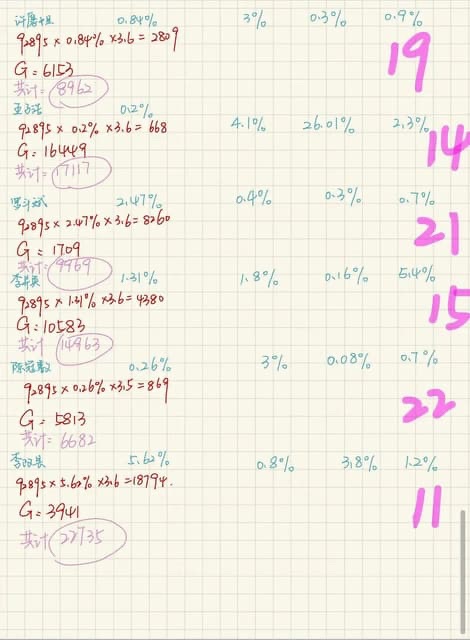 许馨 0.84% 3% 0.3% 0.9%
92895 × 0.84% × 3.6 = 2809
G = 6153
共计: 8962
19
0.2% 4.1% 26.01% 2.3%
92895 × 0.2% × 3.6 = 668
G = 16449
共计: 17117
14
罗斗斌 2.47% 0.4% 0.3% 0.7%
92895 × 2.47% × 3.6 = 8260
G = 1709
共计: 9969
21
李 1.31% 1.8% 0.16% 5.4%
92895 × 1.31% × 3.6 = 4380
G: 10583
共计 14963
15
陈冠 0.26% 3% 0.08% 0.7%
92895 × 0.26% × 3.5 = 869
G = 5813
共计: 6682
22
李 5.62% 0.8% 3.8% 1.2%
92895 × 5.62% × 3.6 = 18794.
G = 3941
共计 22735
11